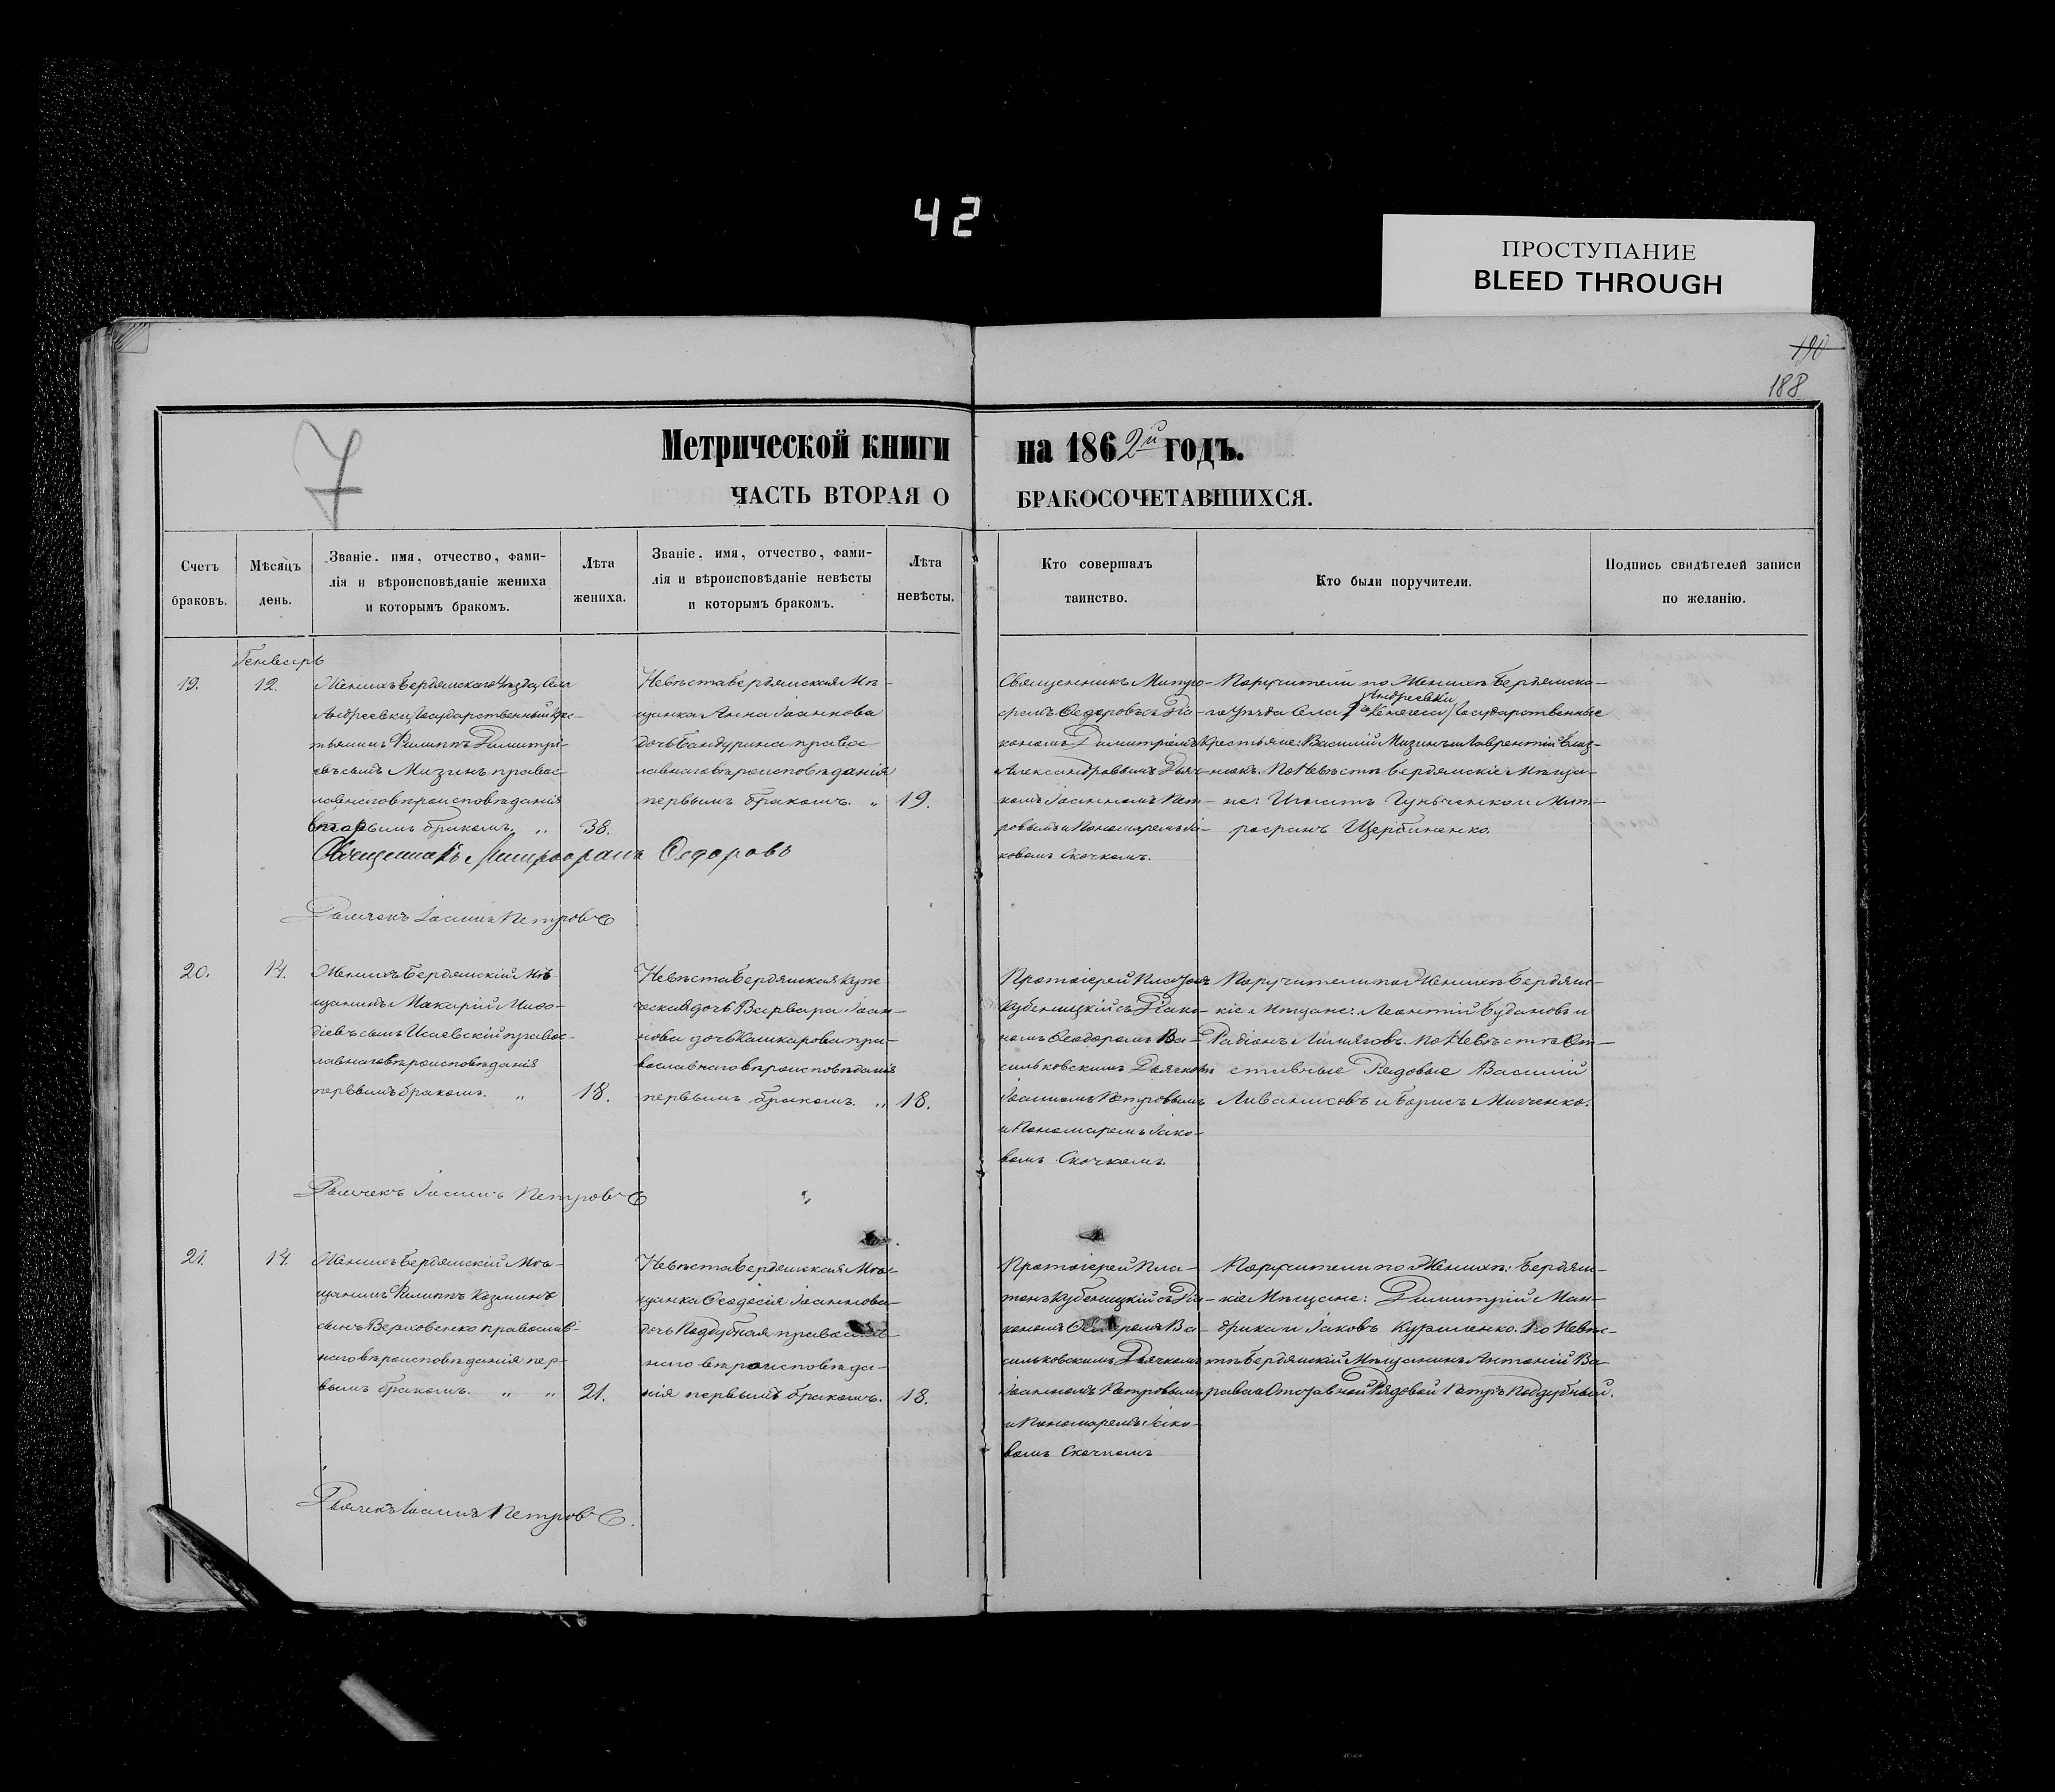 42
ПРОСТУПАНИЕ
BLEED THROUGH
190
188
7
Метрической книги на 1862й годъ.
ЧАСТЬ ВТОРАЯ О БРАКОСОЧЕТАВШИХСЯ.
Счетъ браковъ.
Мѣсяцъ день.
Званіе, имя, отчество, фами-
лія и вѣроисповѣданіе жениха
и которымъ бракомъ.
Лѣта жениха.
Званіе, имя, отчество, фами-
лія и вѣроисповѣданіе невѣсты
и которымъ бракомъ.
Лѣта невѣсты.
Кто совершалъ
таинство.
Кто были поручители.
Подпись свидѣтелей записи
по желанію.
Генварь
19.
12.
Женихъ Бердянскаго Уѣзда, Села
Андреевки Государственный Кре-
стьянинъ Филиппъ Димитрі-
евъ сынъ Мизинъ правос-
лавнаго вѣроисповѣданія
вторымъ бракомъ. „
38.
Невѣста Бердянская Мѣ-
щанка Анна Іоаннова
дочь Бандурина правос-
лавнаго вѣроисповѣданія
первымъ бракомъ. „
19.
Священникъ Митро-
фанъ Ѳедоровъ съ Діа-
кономъ Димитріемъ
Александровымъ Дьяч-
комъ Іоанномъ Пет-
ровымъ и Пономаремъ Іа-
ковомъ Скочкомъ.
Поручители по Женихѣ Бердянска-
Андреевки
го Уѣзда Села Государственные
Крестьяне: Василій Мизинъ и Лаврентій
По Невѣстѣ Бердянскіе Мѣща-
не: Игнатъ и Мит-
рофанъ Щербиненко.
Священникъ Митрофанъ Ѳедоровъ
Дьячекъ Іоаннъ Петровъ
20.
14.
Женихъ Бердянскій Мѣ-
щанинъ Макарій Меѳо-
діевъ сынъ Исаевскій правос-
лавнаго вѣроисповѣданія
первымъ бракомъ. „
18.
Невѣста Бердянская Купе-
ческая дочь Варвара Іоан-
нова дочь Кашкарова пра-
вославнаго вѣроисповѣданія
первымъ бракомъ. „
18.
Протоіерей Платонъ
Кубеницкій съ Діако-
номъ Ѳеодоромъ Ва-
сильковскимъ Дьячкомъ
Іоанномъ Петровымъ
и Пономаремъ Іако-
вомъ Скочкомъ.
Поручители по Женихѣ Бердян-
скіе Мѣщане: Леонтій Будановъ и
Радіонъ По Невѣстѣ От-
ставные Рядовые Василій
и Борисъ
Дьячекъ Іоаннъ Петровъ
21.
14.
Женихъ Бердянскій Мѣ-
щанинъ Филиппъ Козминъ
сынъ Верховенко православ-
наго вѣроисповѣданія пер-
вымъ бракомъ. „ „
21.
Невѣста Бердянская Мѣ-
щанка Ѳеодосія Іоаннова
дочь Поддубная православ-
наго вѣроисповѣда-
нія первымъ бракомъ.
18.
Протоіерей Пла-
тонъ Кубеницкій съ Діа-
кономъ Ѳеодоромъ Ва-
сильковскимъ Дьячкомъ
Іоанномъ Петровымъ
и Пономаремъ Іако-
вомъ Скочкомъ
Поручители по Женихѣ: Бердян-
скіе Мѣщане: Димитрій Ман-
дрика и Іаковъ Куриленко. По Невѣс-
тѣ Бердянскій Мѣщанинъ Антоній Ва-
рава и Отставной Рядовой Петръ Поддубный.
Дьячекъ Іоаннъ Петровъ